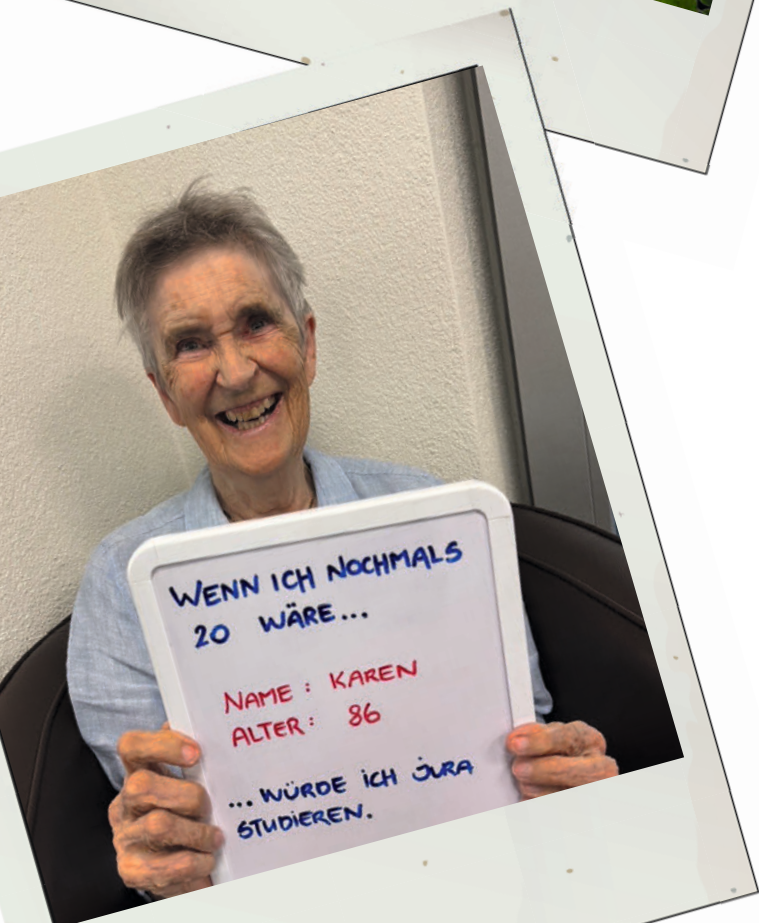 WENN ICH NOCHMALS
20 WÄRE...
NAME: KAREN
ALTER: 86
...WÜRDE ICH JURA
STUDIEREN.